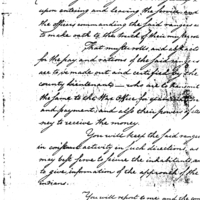 upon entering and leaving the service and
the officer commanding the said rangers is
to make oath to the truth of their musters
That muster rolls, and abstracts
for the pay and rations of the said rangers
are to be made out and certified by the
county lieutenants — who are to transmit
the same to the War Office for examination
and payment; and also their powers of attor-
ney to receive the money.
You will keep the said rangers
in constant activity in such directions, as
may best serve to secure the inhabitants and
to give information of the approach of the
Indians.
You will report to me and the